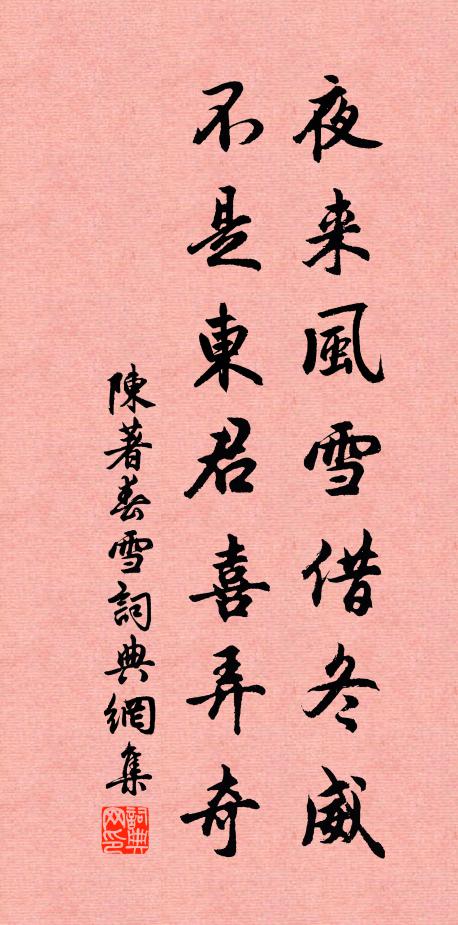 夜来風雪借冬威
不是東君喜弄奇
陳著春雪詞典網集
詞典网印